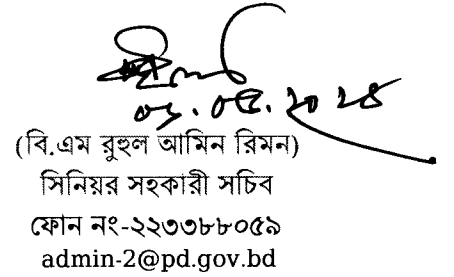 ০১.০৫.২০২৫
(বি.এম রুহুল আমিন রিমন)
সিনিয়র সহকারী সচিব
ফোন নং-২২৩৩৮৮০৫৯
admin-2@pd.gov.bd